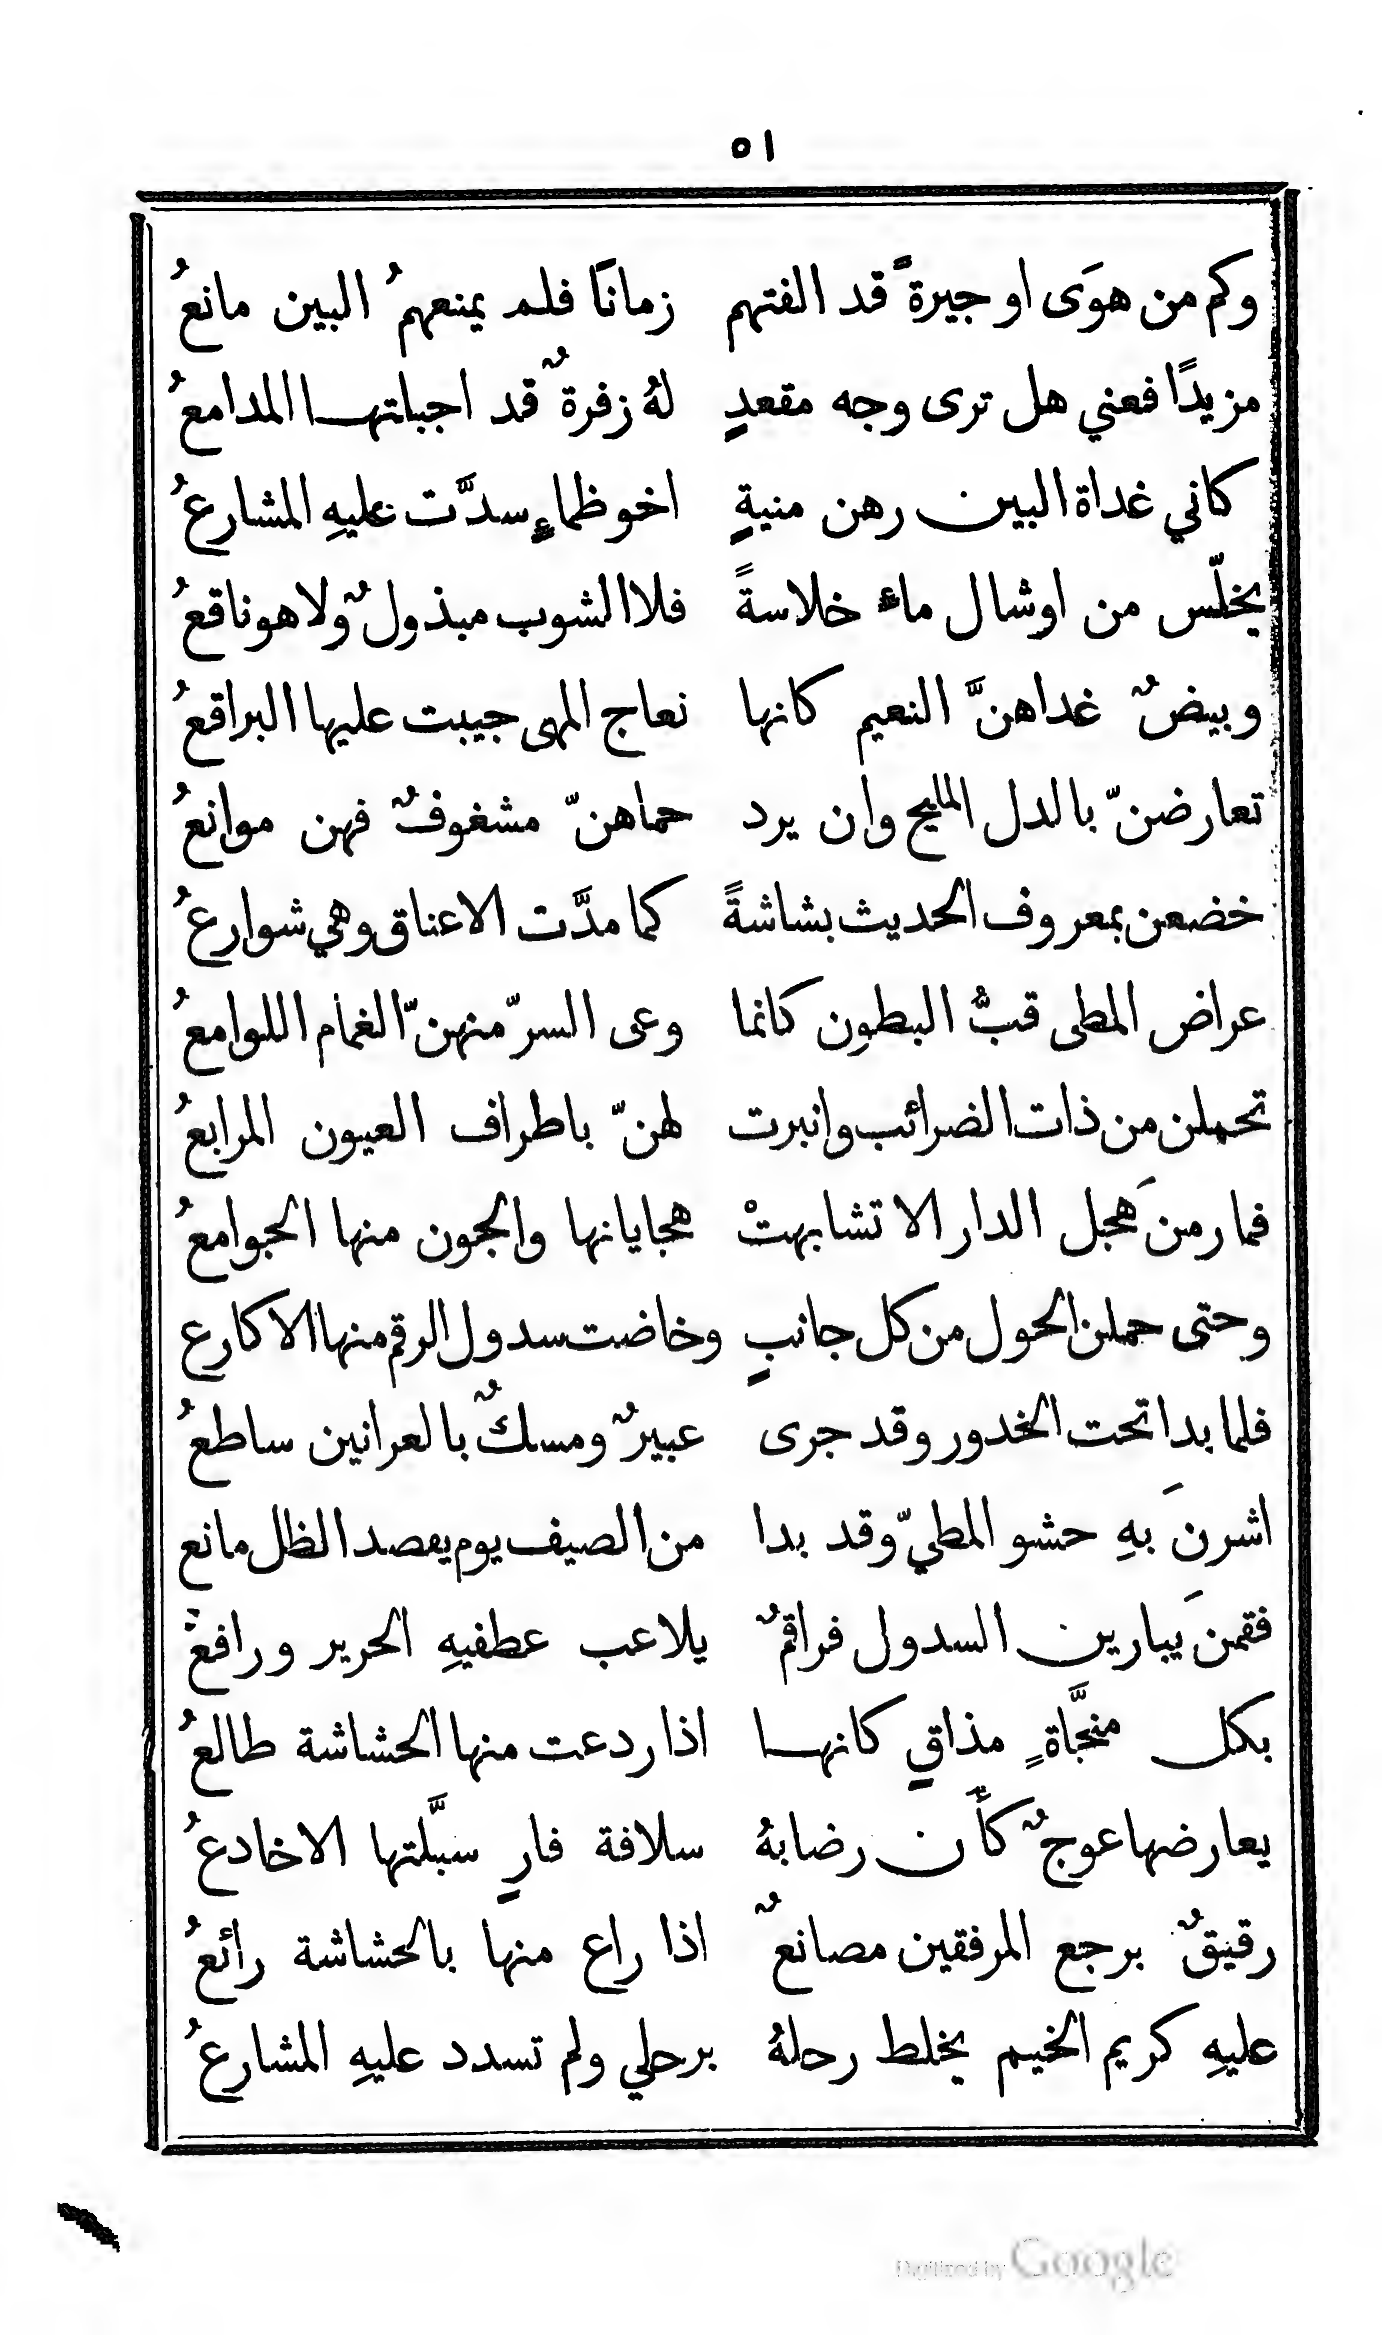 ٥١
وكم من هوَى او جيرةً قد الفتهم زمانًا فلم يمنعهمُ البين مانعُ
مزيدًا فعني هل ترى وجه مقعدٍ لهُ زفرةٌ قد اجبلتهـا المدامعُ
كاني غداة البين رهن منيةٍ اخو ظماءٍ سدَّت عليهِ المشارعُ
يخلّس من اوشال ماء خلاسةً فلا الشوب مبذولٌ ولا هو ناقعُ
وبيضٌ غداهنَّ النعيم كانها نعاج المهى جيبت عليها البراقعُ
تعارضنّ بالدل المليح وان يرد حماهنّ مشغوفٌ فهن موانعُ
خضعن بمعروف الحديث بشاشةً كما مدَّت الاعناق وهي شوارعُ
عراض المطى قبُّ البطون كانما وعى السرّ منهنّ الغمام اللوامعُ
تحملن من ذات الضرائب وانبرت لهنّ باطراف العيون المرابعُ
فما رمنَ هجل الدار الا تشابهتْ هجايانها والجون منها الجوامعُ
وحتى حملن الحول من كل جانبٍ وخاضت سدول الرقم منها الاكارع
فلما بدا تحت الخدور وقد جرى عبيرٌ ومسكٌ بالعرانين ساطعُ
اشرنَ بهِ حشو المطيّ وقد بدا من الصيف يوم يقصد الظل مانع
فقمنَ يبارين السدول فراقمٌ يلاعب عطفيهِ الحرير ورافعُ
بكل منجَّاةٍ مذاقٍ كانهـا اذا ردعت منها الحشاشة طالعُ
يعارضها عوجٌ كأَن رضابهُ سلافة فارٍ سبَّلتها الاخادعُ
رقيقٌ برجع المرفقين مصانعٌ اذا راع منها بالحشاشة رائعُ
عليهِ كريم الخيم يخلط رحلهُ برحلي ولم تسدد عليهِ المشارعُ
Digitized by Google